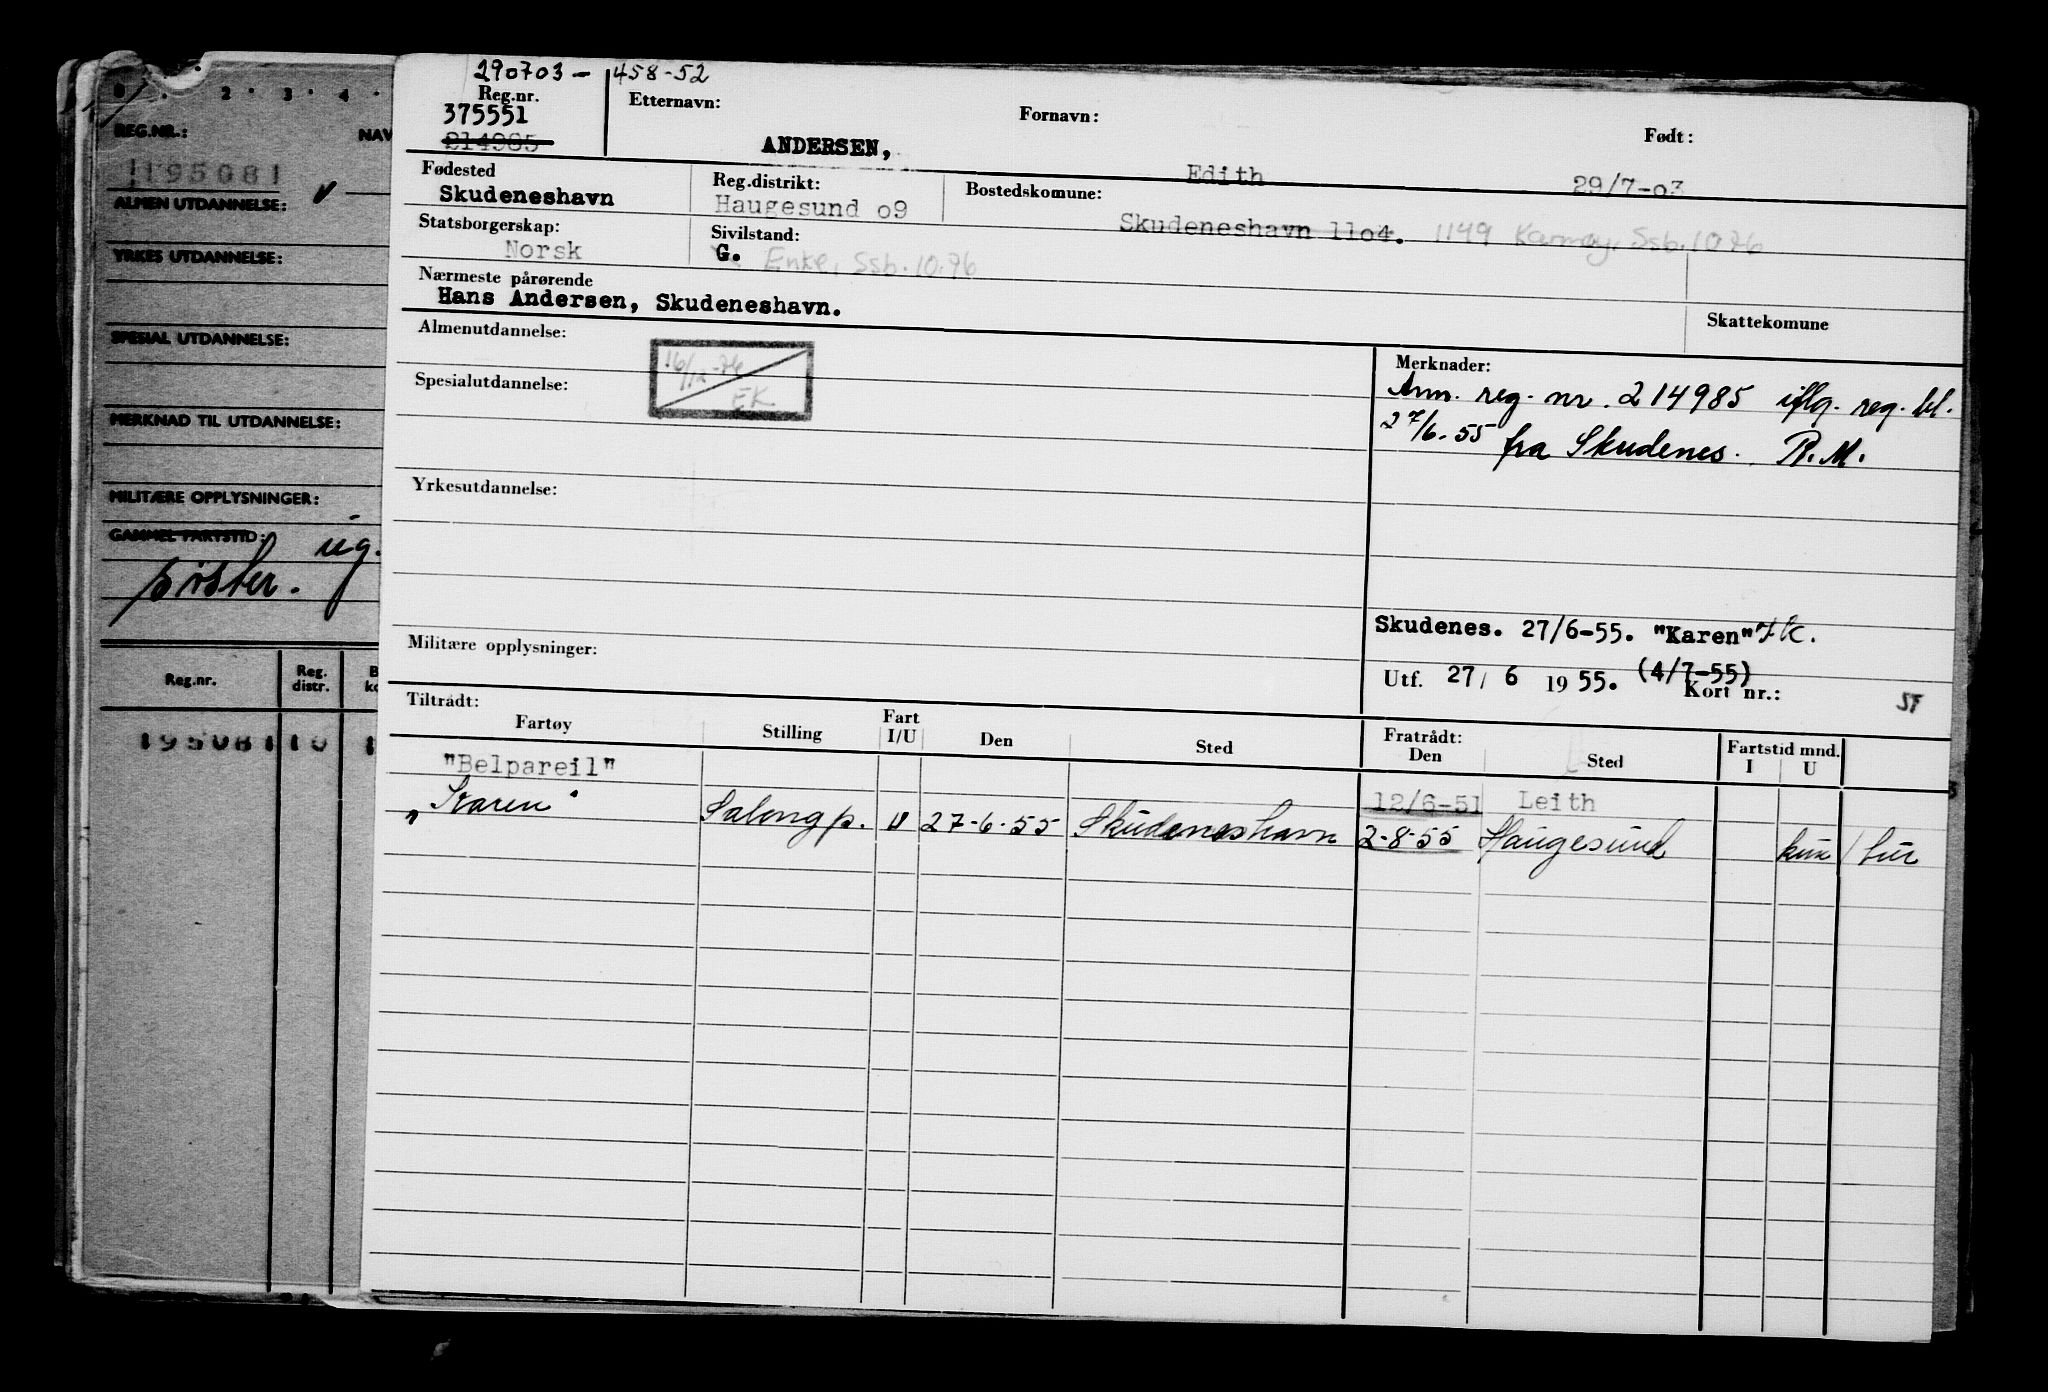 290703- 458-52
Reg.nr. Etternavn: Fornavn: Født:
375551
214985 ANDERSEN, Edith 29/7-03
Fødested Reg.distrikt: Bostedskomune:
Skudeneshavn Haugesund o9 Skudeneshavn 11o4. 1149 Karmøy, Ssb.10.76
Statsborgerskap: Sivilstand:
Norsk G. Enke, Ssb.10.76
Nærmeste pårørende
Hans Andersen, Skudeneshavn.
Skattekomune
Almenutdannelse: Merknader:
16/12-76
EK
Spesialutdannelse:
Ann. reg. nr. 214985 iflg. reg. bl.
27/6-55 fra Skudenes. R.M.
Yrkesutdannelse:
Skudenes. 27/6-55. "Karen"
Militære opplysninger:
Utf. 27/ 6 1955. (4/7-55) Kort nr.:
Tiltrådt: Fratrådt:
Fartøy Stilling Fart I/U Den Sted Den Sted Fartstid mnd. I U
"Belpareil" 12/6-51 Leith
"Karen" Salongp. U 27-6-55 Skudeneshavn 2-8-55 Haugesund kun 1 tur
0 . 2 . 3 . 4 .
REG.NR.: NAV
1195081
ALMEN UTDANNELSE:
YRKES UTDANNELSE:
SPESIAL UTDANNELSE:
MERKNAD TIL UTDANNELSE:
MILITÆRE OPPLYSNINGER:
GAMMEL FARTSTID: ug.
Reg.nr. Reg. distr.
195081 10 1